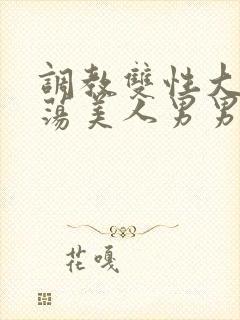 調教雙性大
蕩美人男男
花嘎